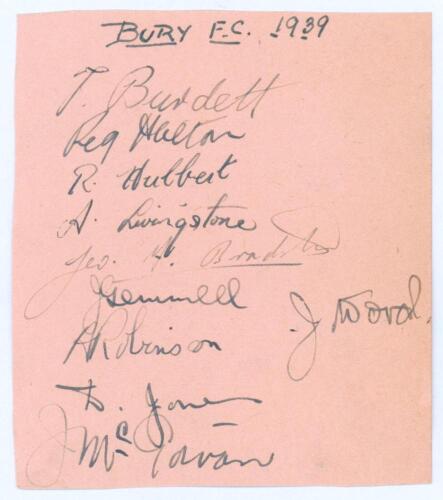 BURY F.C. 1939
T. Burdett
Reg Halton
R. Hulbert
A. Livingstone
Geo. H. Bradshaw
J Gemmell
A Robinson
J
D. Jones
J McGowan